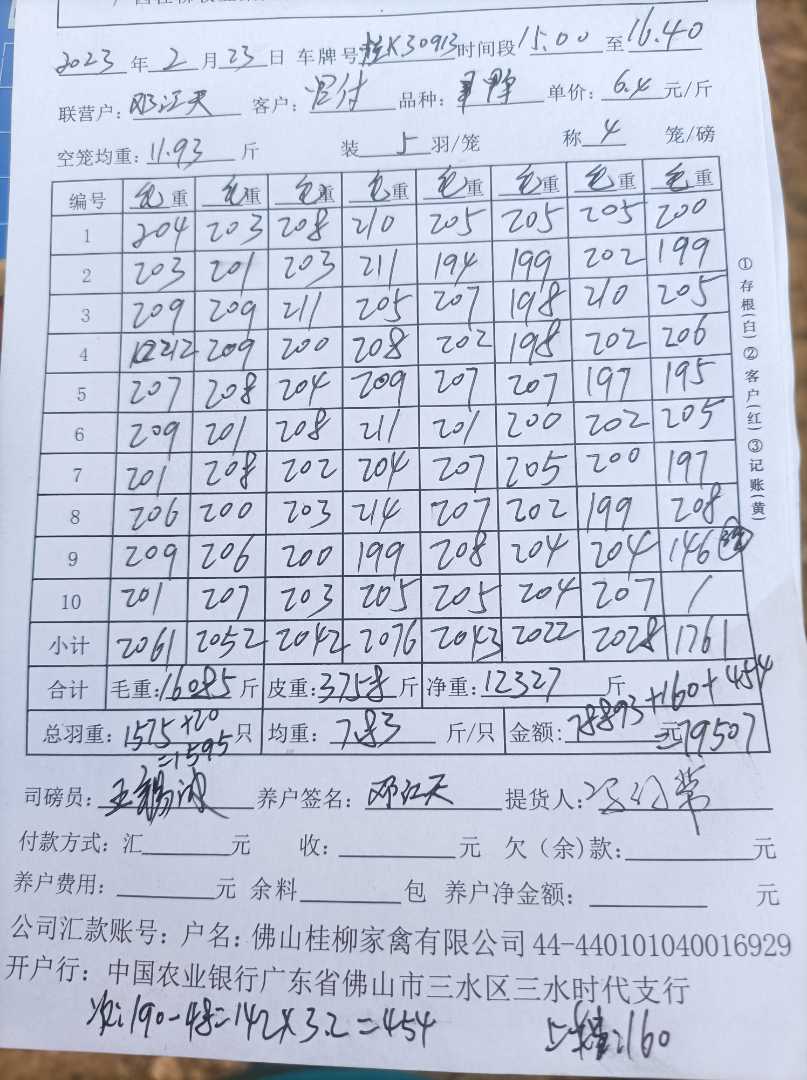 2023年2月23日 车牌号桂K30913时间段15.00至16.40
联营户:邓江天 客户: 品种: 单价:6.4元/斤
空笼均重:11.93斤 装5羽/笼 称4笼/磅
编号 毛重 毛重 毛重 毛重 毛重 毛重 毛重 毛重
1 204 203 208 210 205 205 205 200
2 203 201 203 211 194 199 202 199
3 209 209 211 205 207 198 210 205
4 212 209 200 208 202 198 202 206
5 207 208 204 209 207 207 197 195
6 209 201 208 211 201 200 202 205
7 201 208 202 204 207 205 200 197
8 206 200 203 214 207 202 199 208
9 209 206 200 199 208 204 204 146
10 201 207 203 205 205 204 207 /
小计 2061 2052 2042 2076 2043 2022 2028 1761
合计 毛重:16085斤 皮重:3758斤 净重:12327斤
总羽重:1575+20=1595只 均重:7.83斤/只 金额:78893+160+454=79507元
司磅员: 养户签名:邓江天 提货人:
付款方式:汇 元 收: 元 欠（余)款: 元
养户费用: 元 余料 包 养户净金额: 元
公司汇款账号:户名:佛山桂柳家禽有限公司 44-440101040016929
开户行:中国农业银行广东省佛山市三水区三水时代支行
次:190-48=142×3.2=454
:160
①存根(白)②客户(红)③记账(黄)